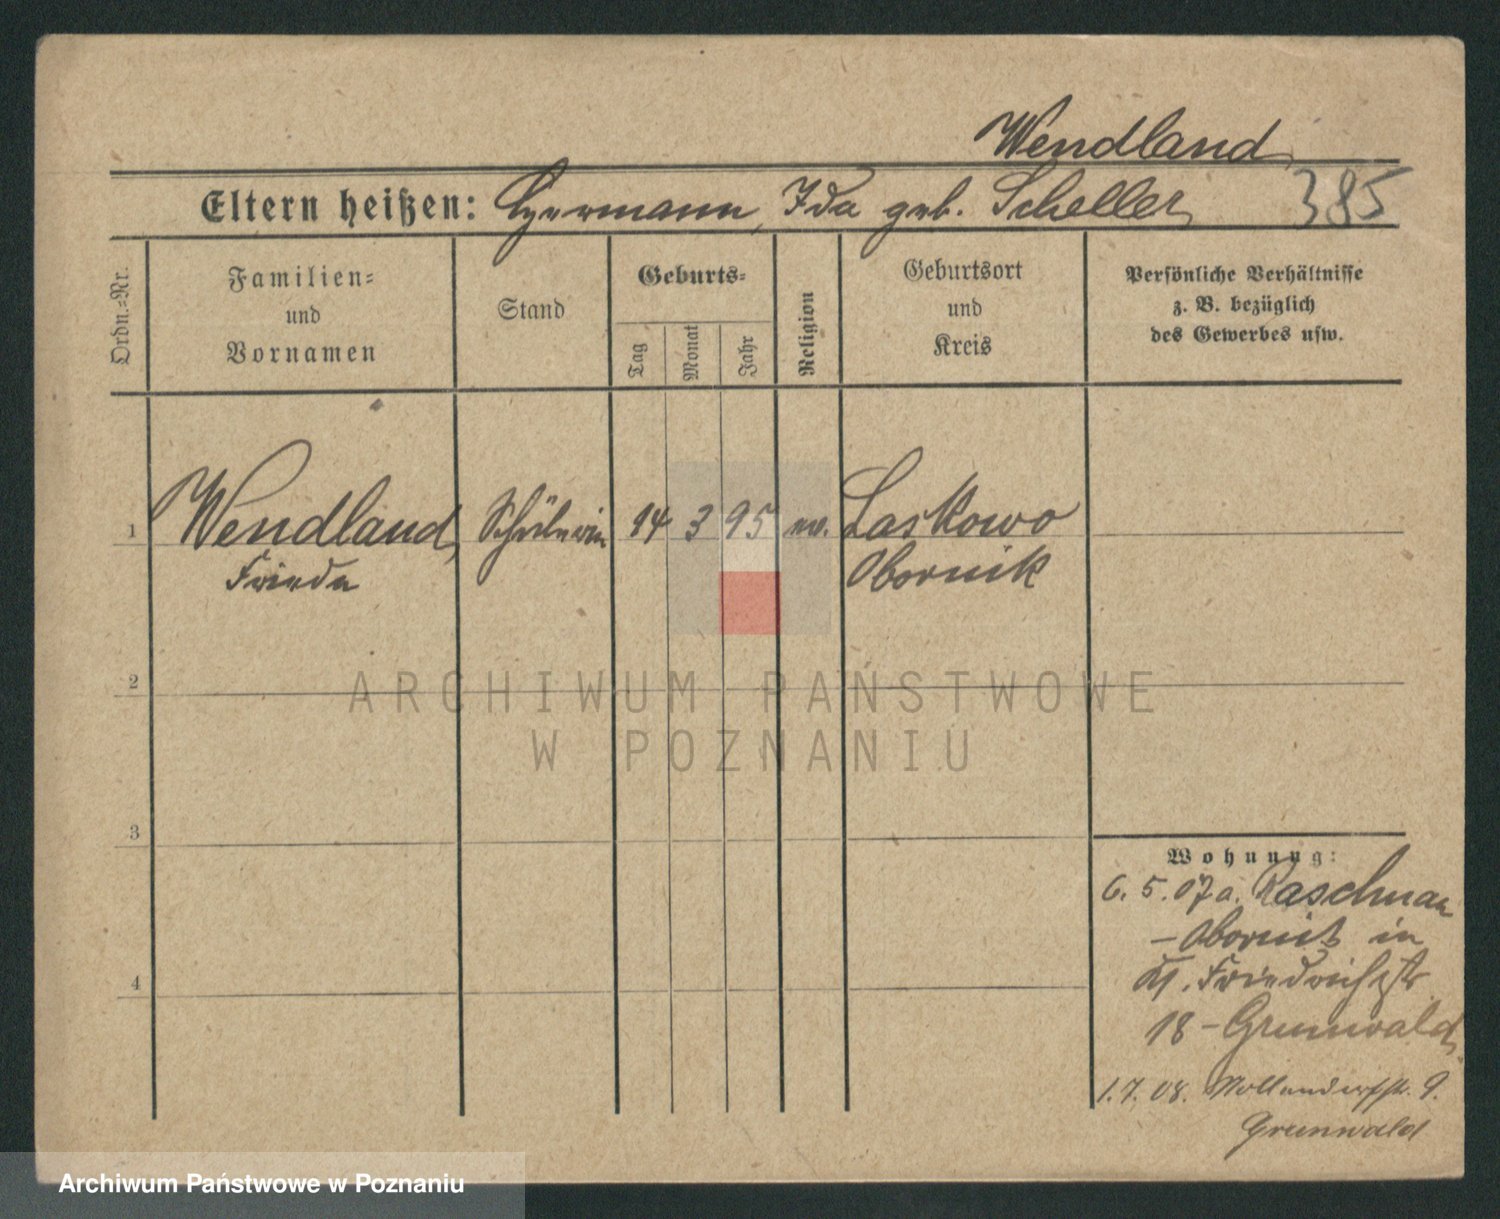 Wendland
Eltern heißen: Hermann, Ida geb. Scheller
385
Ordn.-Nr.
Familien-
und
Vornamen
Stand
Geburts-
Tag
Monat
Jahr
Religion
Geburtsort
und
Kreis
Persönliche Verhältnisse
z. B. bezüglich
des Gewerbes usw.
1
Wendland, Schülerin 14 3 95 ev. Laskowo
Frieda Obornik
2
ARCHIWUM PAŃSTWOWE
W POZNANIU
3
Wohnung:
6. 5. 07 a.
– Obornik in
Friedrichstr.
18 – Grunwald,
4
1. 7. 08. 9.
Grunwald
Archiwum Państwowe w Poznaniu